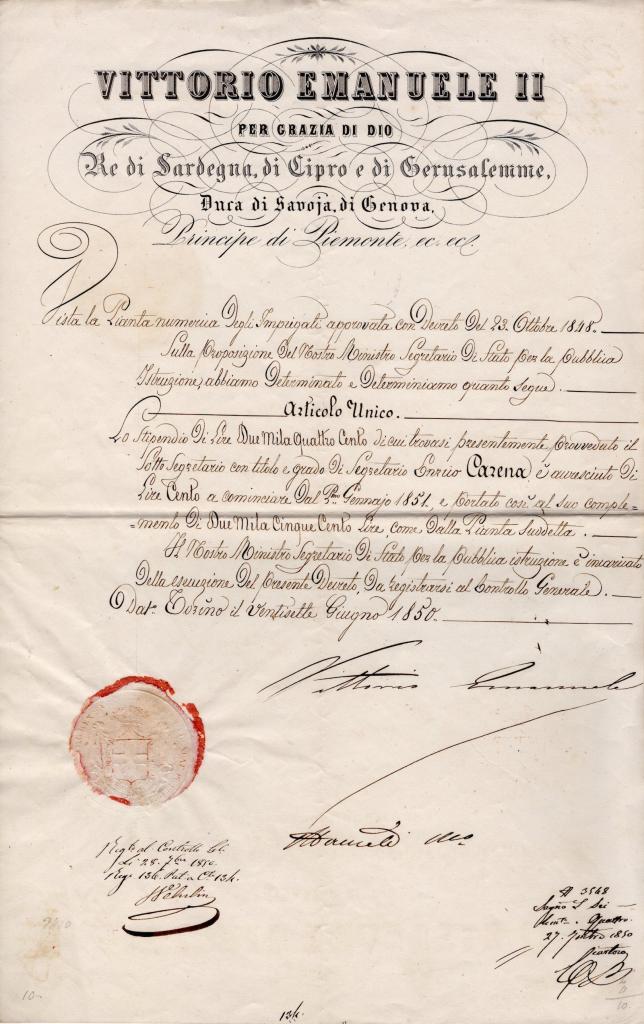 VITTORIO EMANUELE II
PER GRAZIA DI DIO
Re di Sardegna, di Cipro e di Gerusalemme,
Duca di Savoja, di Genova,
Principe di Piemonte, ec. ec.
Vista la Pianta numerica degli Impiegati approvata con Decreto del 23. Ottobre 1848.
Sulla Proposizione del Nostro Ministro Segretario di Stato per la Pubblica
Istruzione, abbiamo determinato e determiniamo quanto segue.
Articolo Unico.
Lo Stipendio di Lire Due Mila Quattro Cento di cui trovasi presentemente provveduto il
Sotto Segretario con titolo e grado di Segretario Enrico Carena, è accresciuto di
Lire Cento a cominciare dal P.mo Gennajo 1851, e portato così al suo comple-
-mento di Due Mila Cinque Cento Lire, come dalla Pianta suddetta.
Il Nostro Ministro Segretario di Stato per la Pubblica istruzione è incaricato
della esecuzione del presente Decreto, da registrarsi al Controllo Generale.
Dat. Torino il Ventisette Giugno 1850.
Vittorio Emanuele
Mameli
al Controllo
28. 7bre 1850
N 3548
Quattro
27 1850
10
134
10